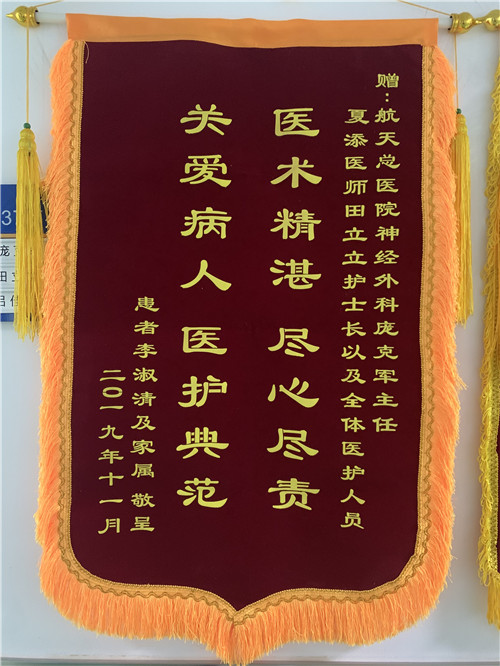 赠：航天总医院神经外科庞克军主任
夏添医师田立立护士长以及全体医护人员
医术精湛 尽心尽责
关爱病人 医护典范
患者李淑清及家属 敬呈
二〇一九年十一月
37
庞
田立
吕